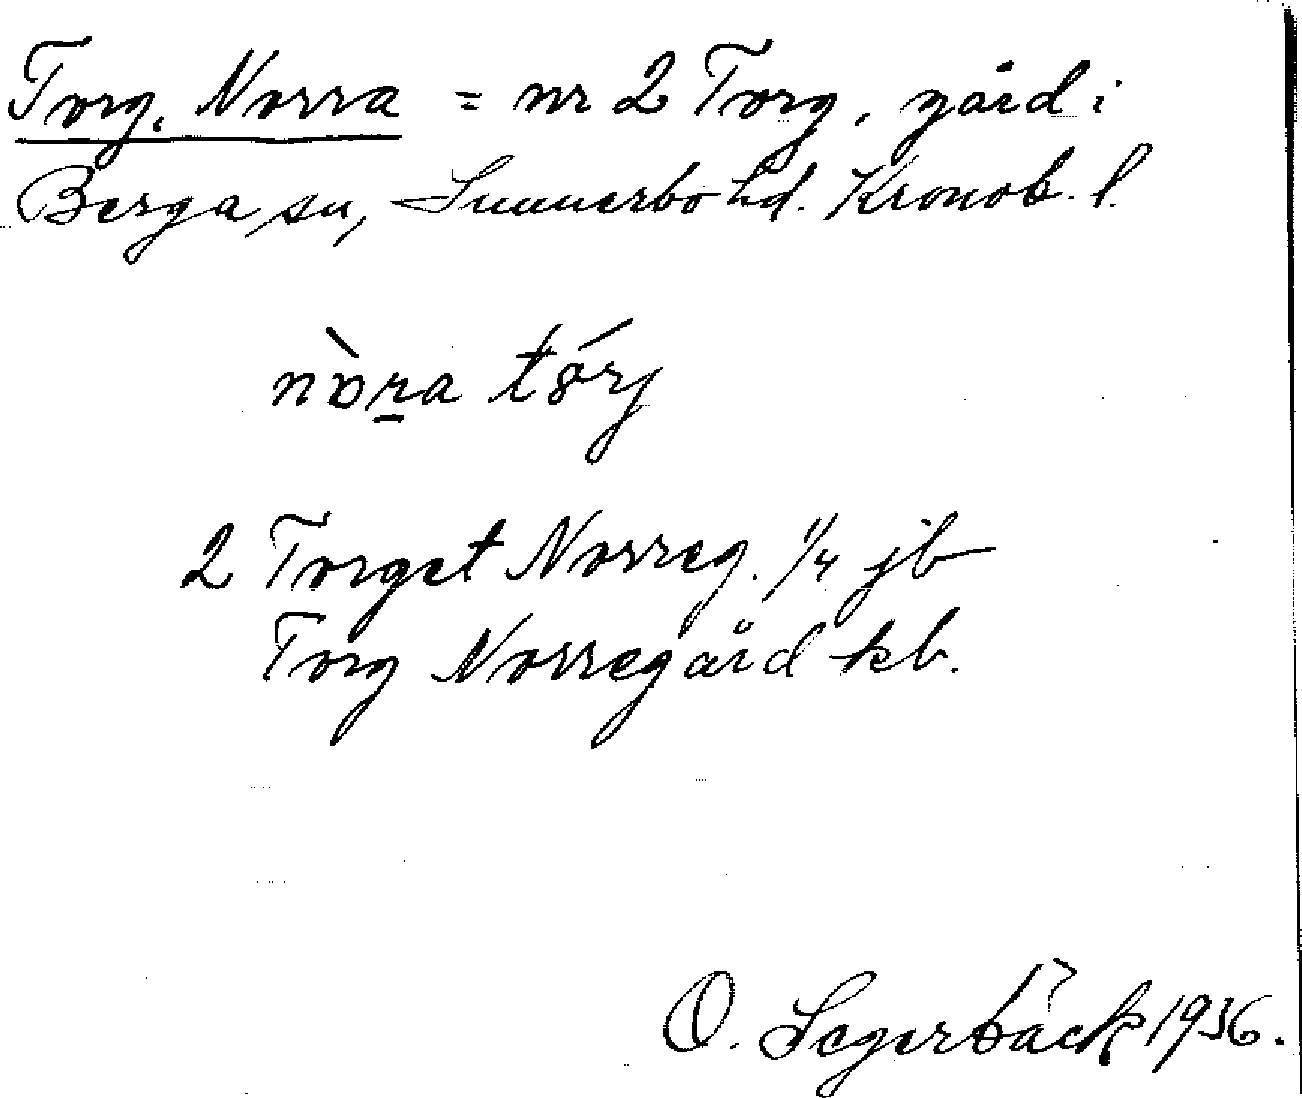 Torg, Norra = nr 2 Torg, gård i
Berga sn, Sunnerbo hd. Kronob. l.
nòra tórj
2 Torget Norreg. 1/4 jb
Torg Norregård kb.
O. Segerbäck 1936.